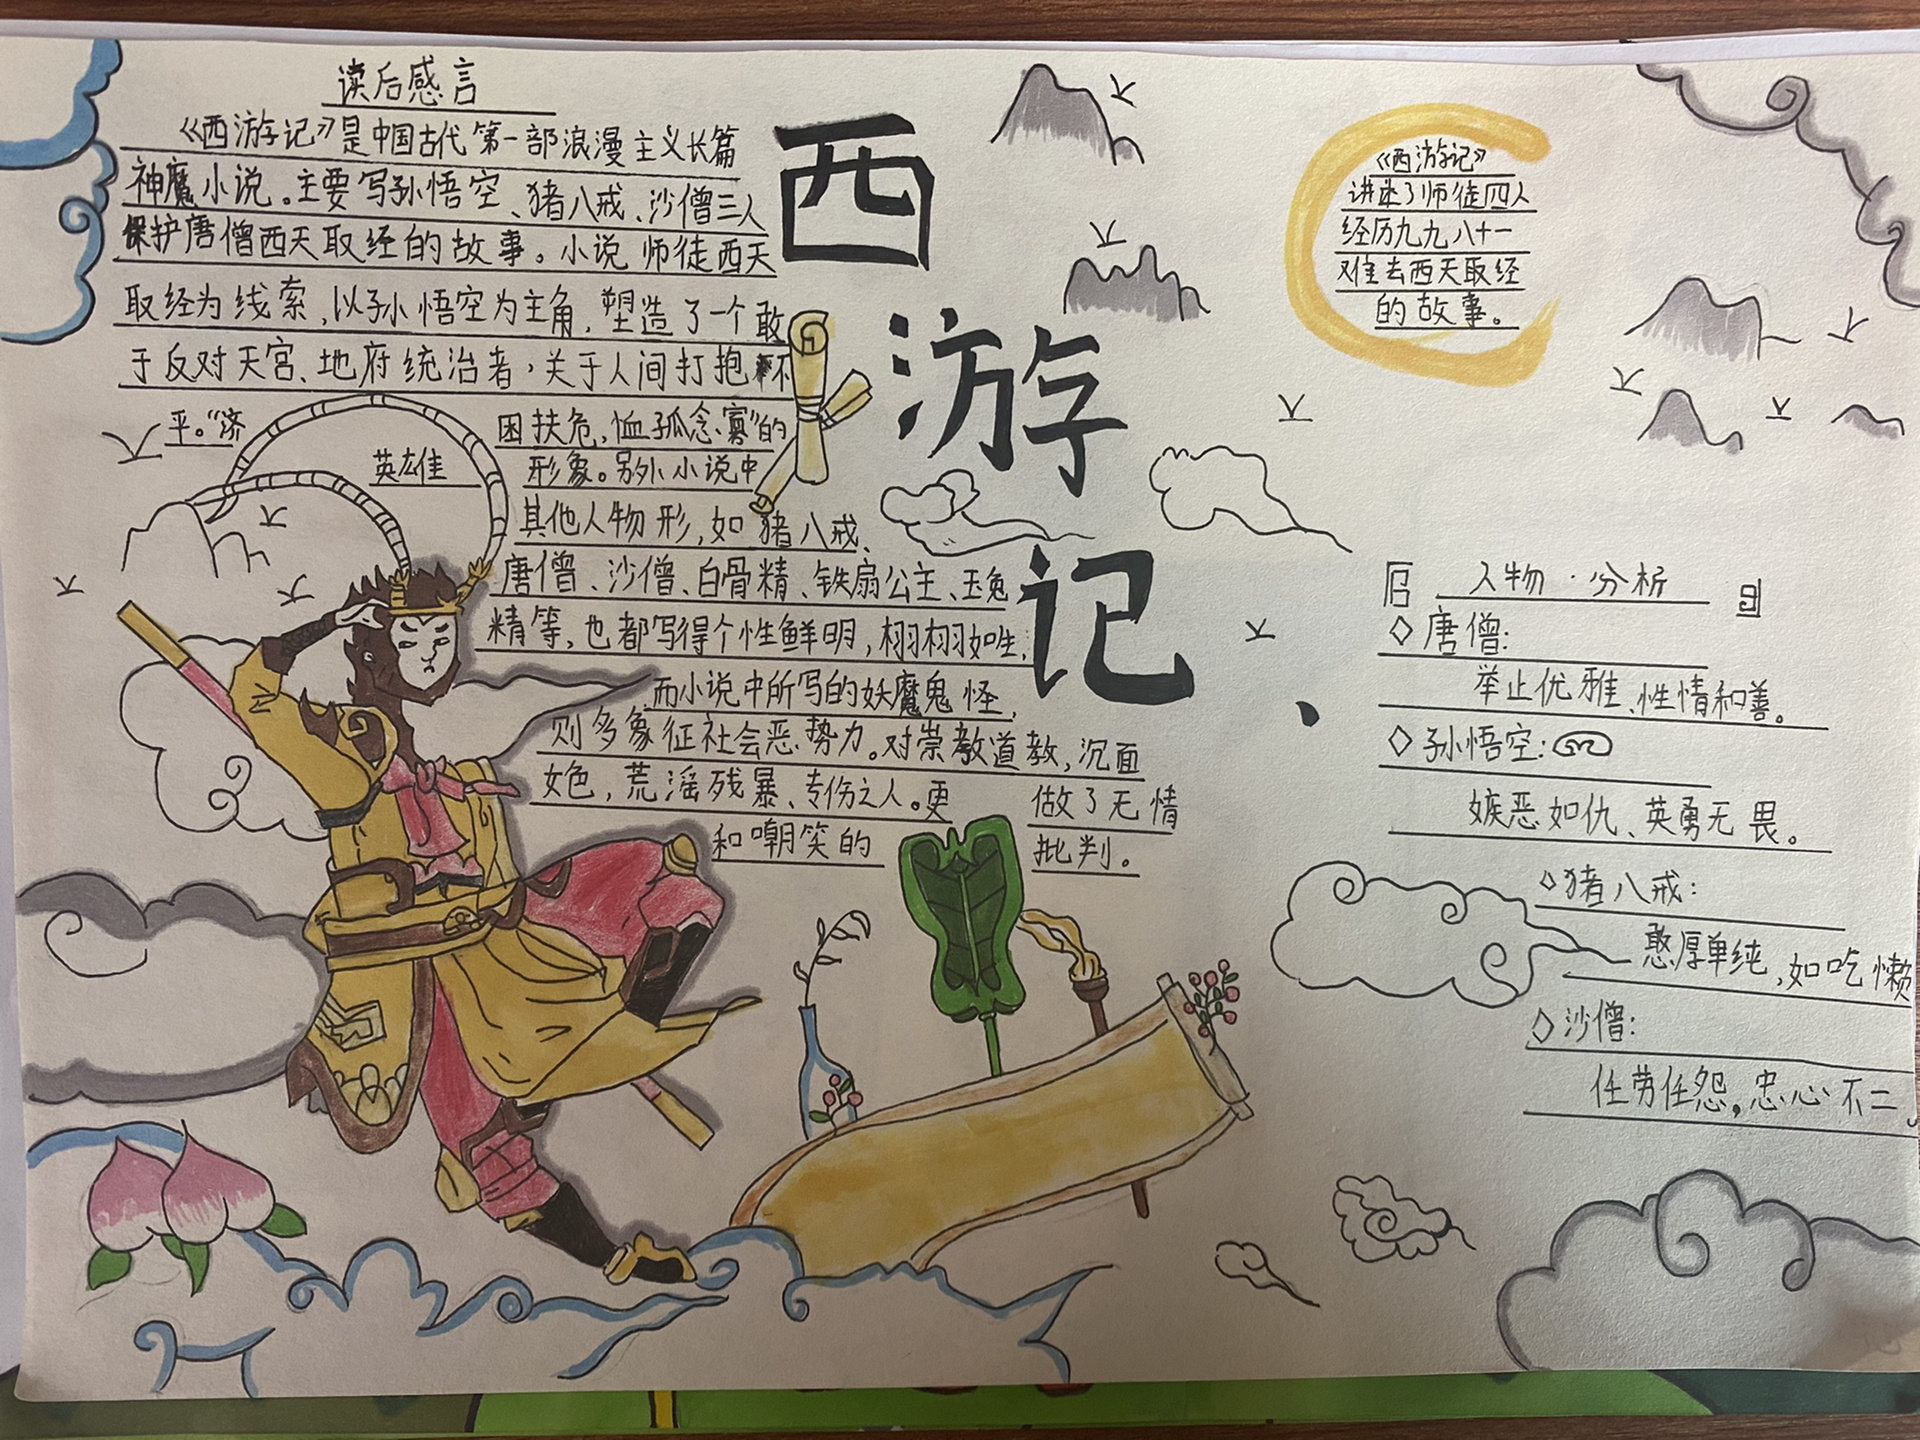 读后感言
《西游记》是中国古代第一部浪漫主义长篇
神魔小说。主要写孙悟空、猪八戒、沙僧三人
保护唐僧西天取经的故事。小说师徒西天
取经为线索,以孙悟空为主角,塑造了一个敢
于反对天宫、地府统治者,关于人间打抱不
平。“济
英雄
困扶危,恤孤念寡”的
形象。另外小说中
其他人物形,如猪八戒、
唐僧、沙僧、白骨精、铁扇公主、玉兔
精等,也都写得个性鲜明,栩栩如生,
而小说中所写的妖魔鬼怪,
则多象征社会恶势力。对崇教道教,沉面
女色,荒淫残暴、专伤之人。更 做了无情
和嘲笑的 批判。
西
游
记、
《西游记》
讲述了师徒四人
经历九九八十一
难去西天取经
的故事。
人物·分析
◇唐僧:
举止优雅、性情和善。
◇孙悟空:
嫉恶如仇、英勇无畏。
◇猪八戒:
憨厚单纯,如吃懒
◇沙僧:
任劳任怨,忠心不二